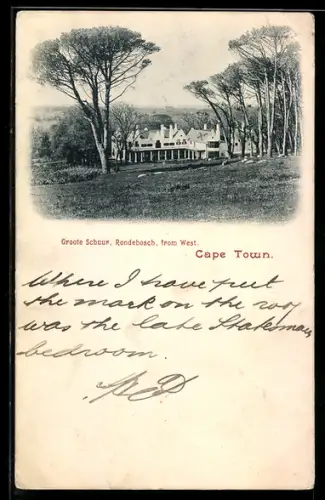 Groote Schuur, Rondebosch, from West.
Cape Town.
Where I have put
the mark on the roof
was the late Statesman
bedroom.